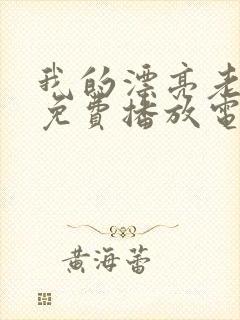 我的漂亮老
免費播放電
黄海蕾